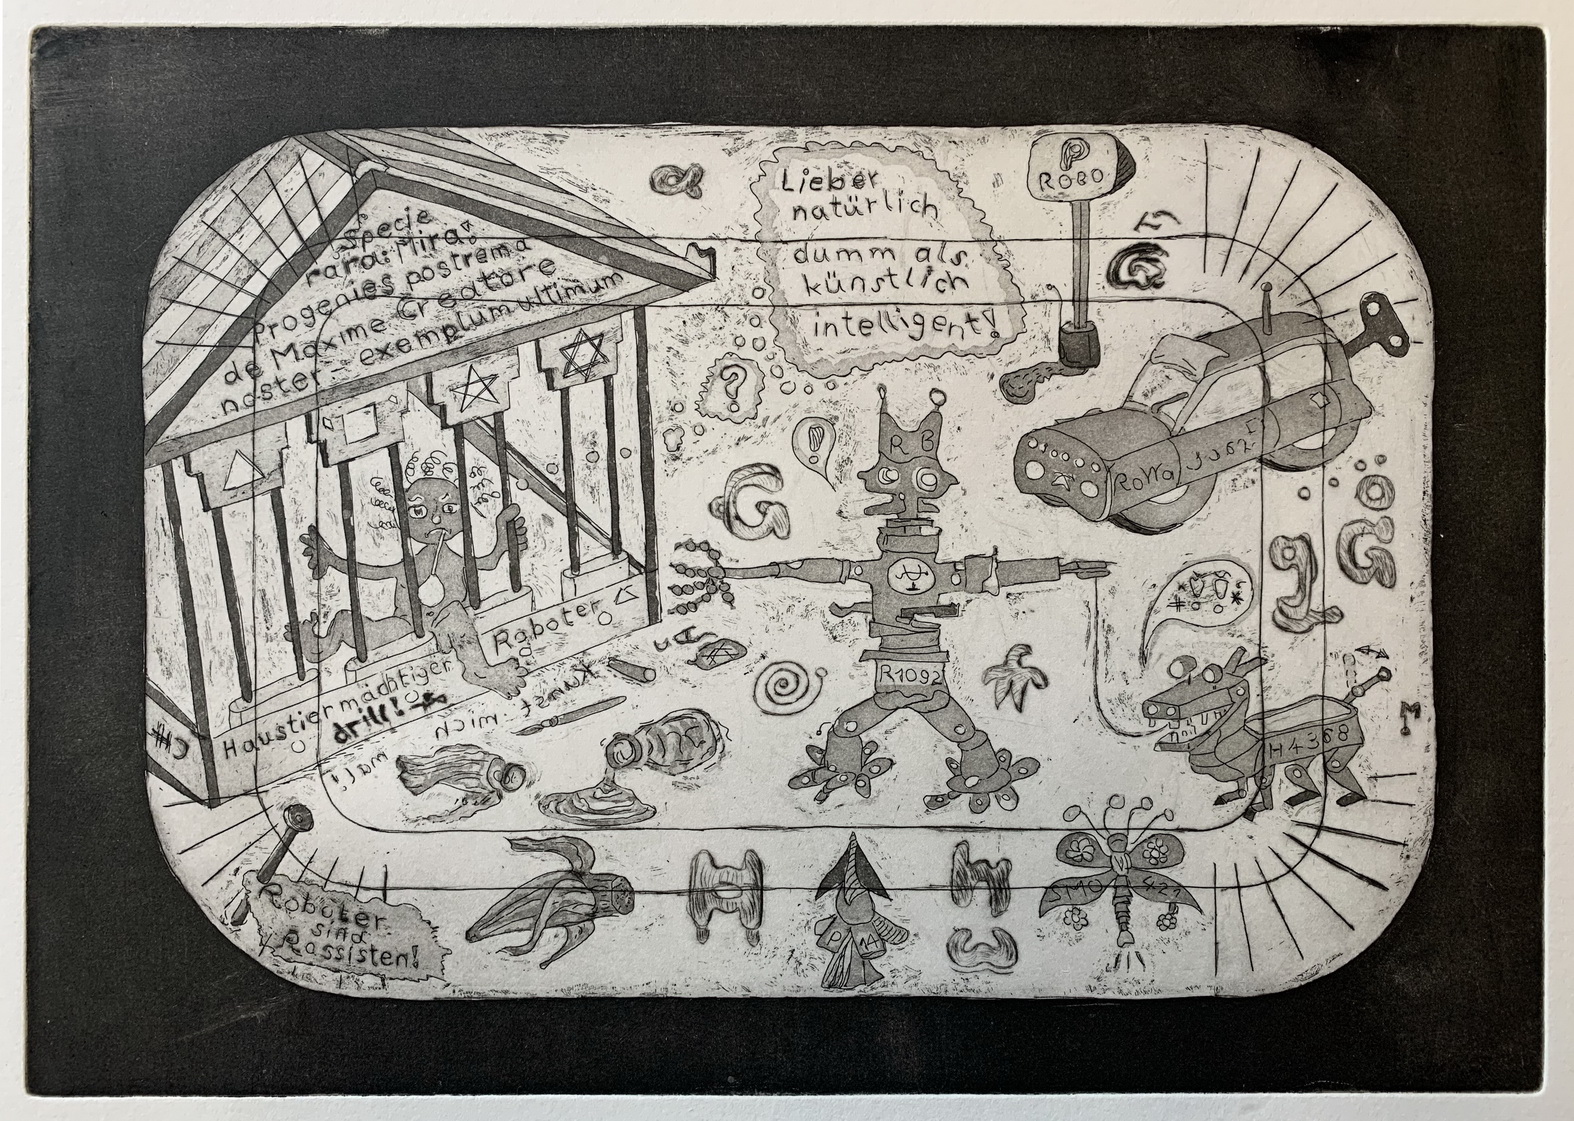 Specie
rara: Mira!
Progenies postrema
de Maxime Creatore
noster - exemplum ultimum
Lieber
natürlich
dumm als
künstlich
intelligent!
P
ROBO
?
!
R B
G
RoWa 3062
G
g
R1092
H4368
Roboter
Haustiermächtiger
drill!
Kunst
mich
mal!
Roboter
sind
Rassisten!
P 14
SMO 421